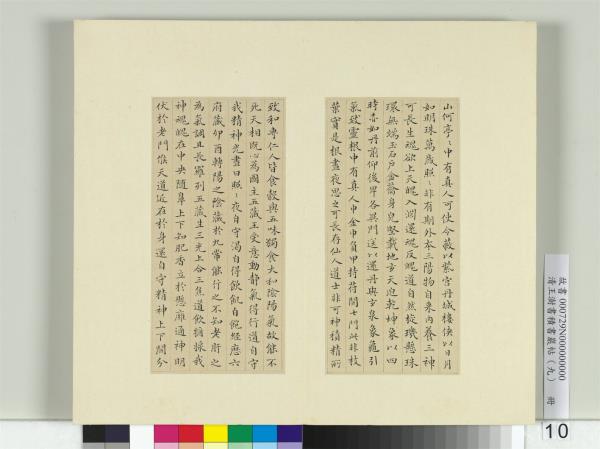 山何亭〻中有真人可使令蔽以紫宮丹城樓俠以日月
如明珠萬歲照〻非有期外本三陽物自来内養三神
可長生魂欲上天魄入淵還魂反魄道自然旋璣懸珠
環無端玉石戶金籥身兒堅載地玄天迫乾坤象以四
時赤如丹前仰後卑各異門送以還丹與玄泉象龜引
氣致靈根中有真人巾金巾負甲持苻開七門此非枝
葉實是根晝夜思之可長存仙人道士非可神積精所
致和專仁人皆食穀與五味獨食大和陰陽氣故能不
死天相既心為國主五藏王受意動静氣得行道自守
我精神光晝日照〻夜自守渴自得飲飢自飽經歷六
府藏卯酉轉陽之陰藏於九常能行之不知老肝之
為氣調且長羅列五藏生三光上合三焦道飲醬漿我
神魂魄在中央隨鼻上下知肥香立於懸膺通神明
伏於老門候天道近在於身還自守精神上下開分
故書 000729N000000000
清王澍書積書巖帖（九） 冊
10